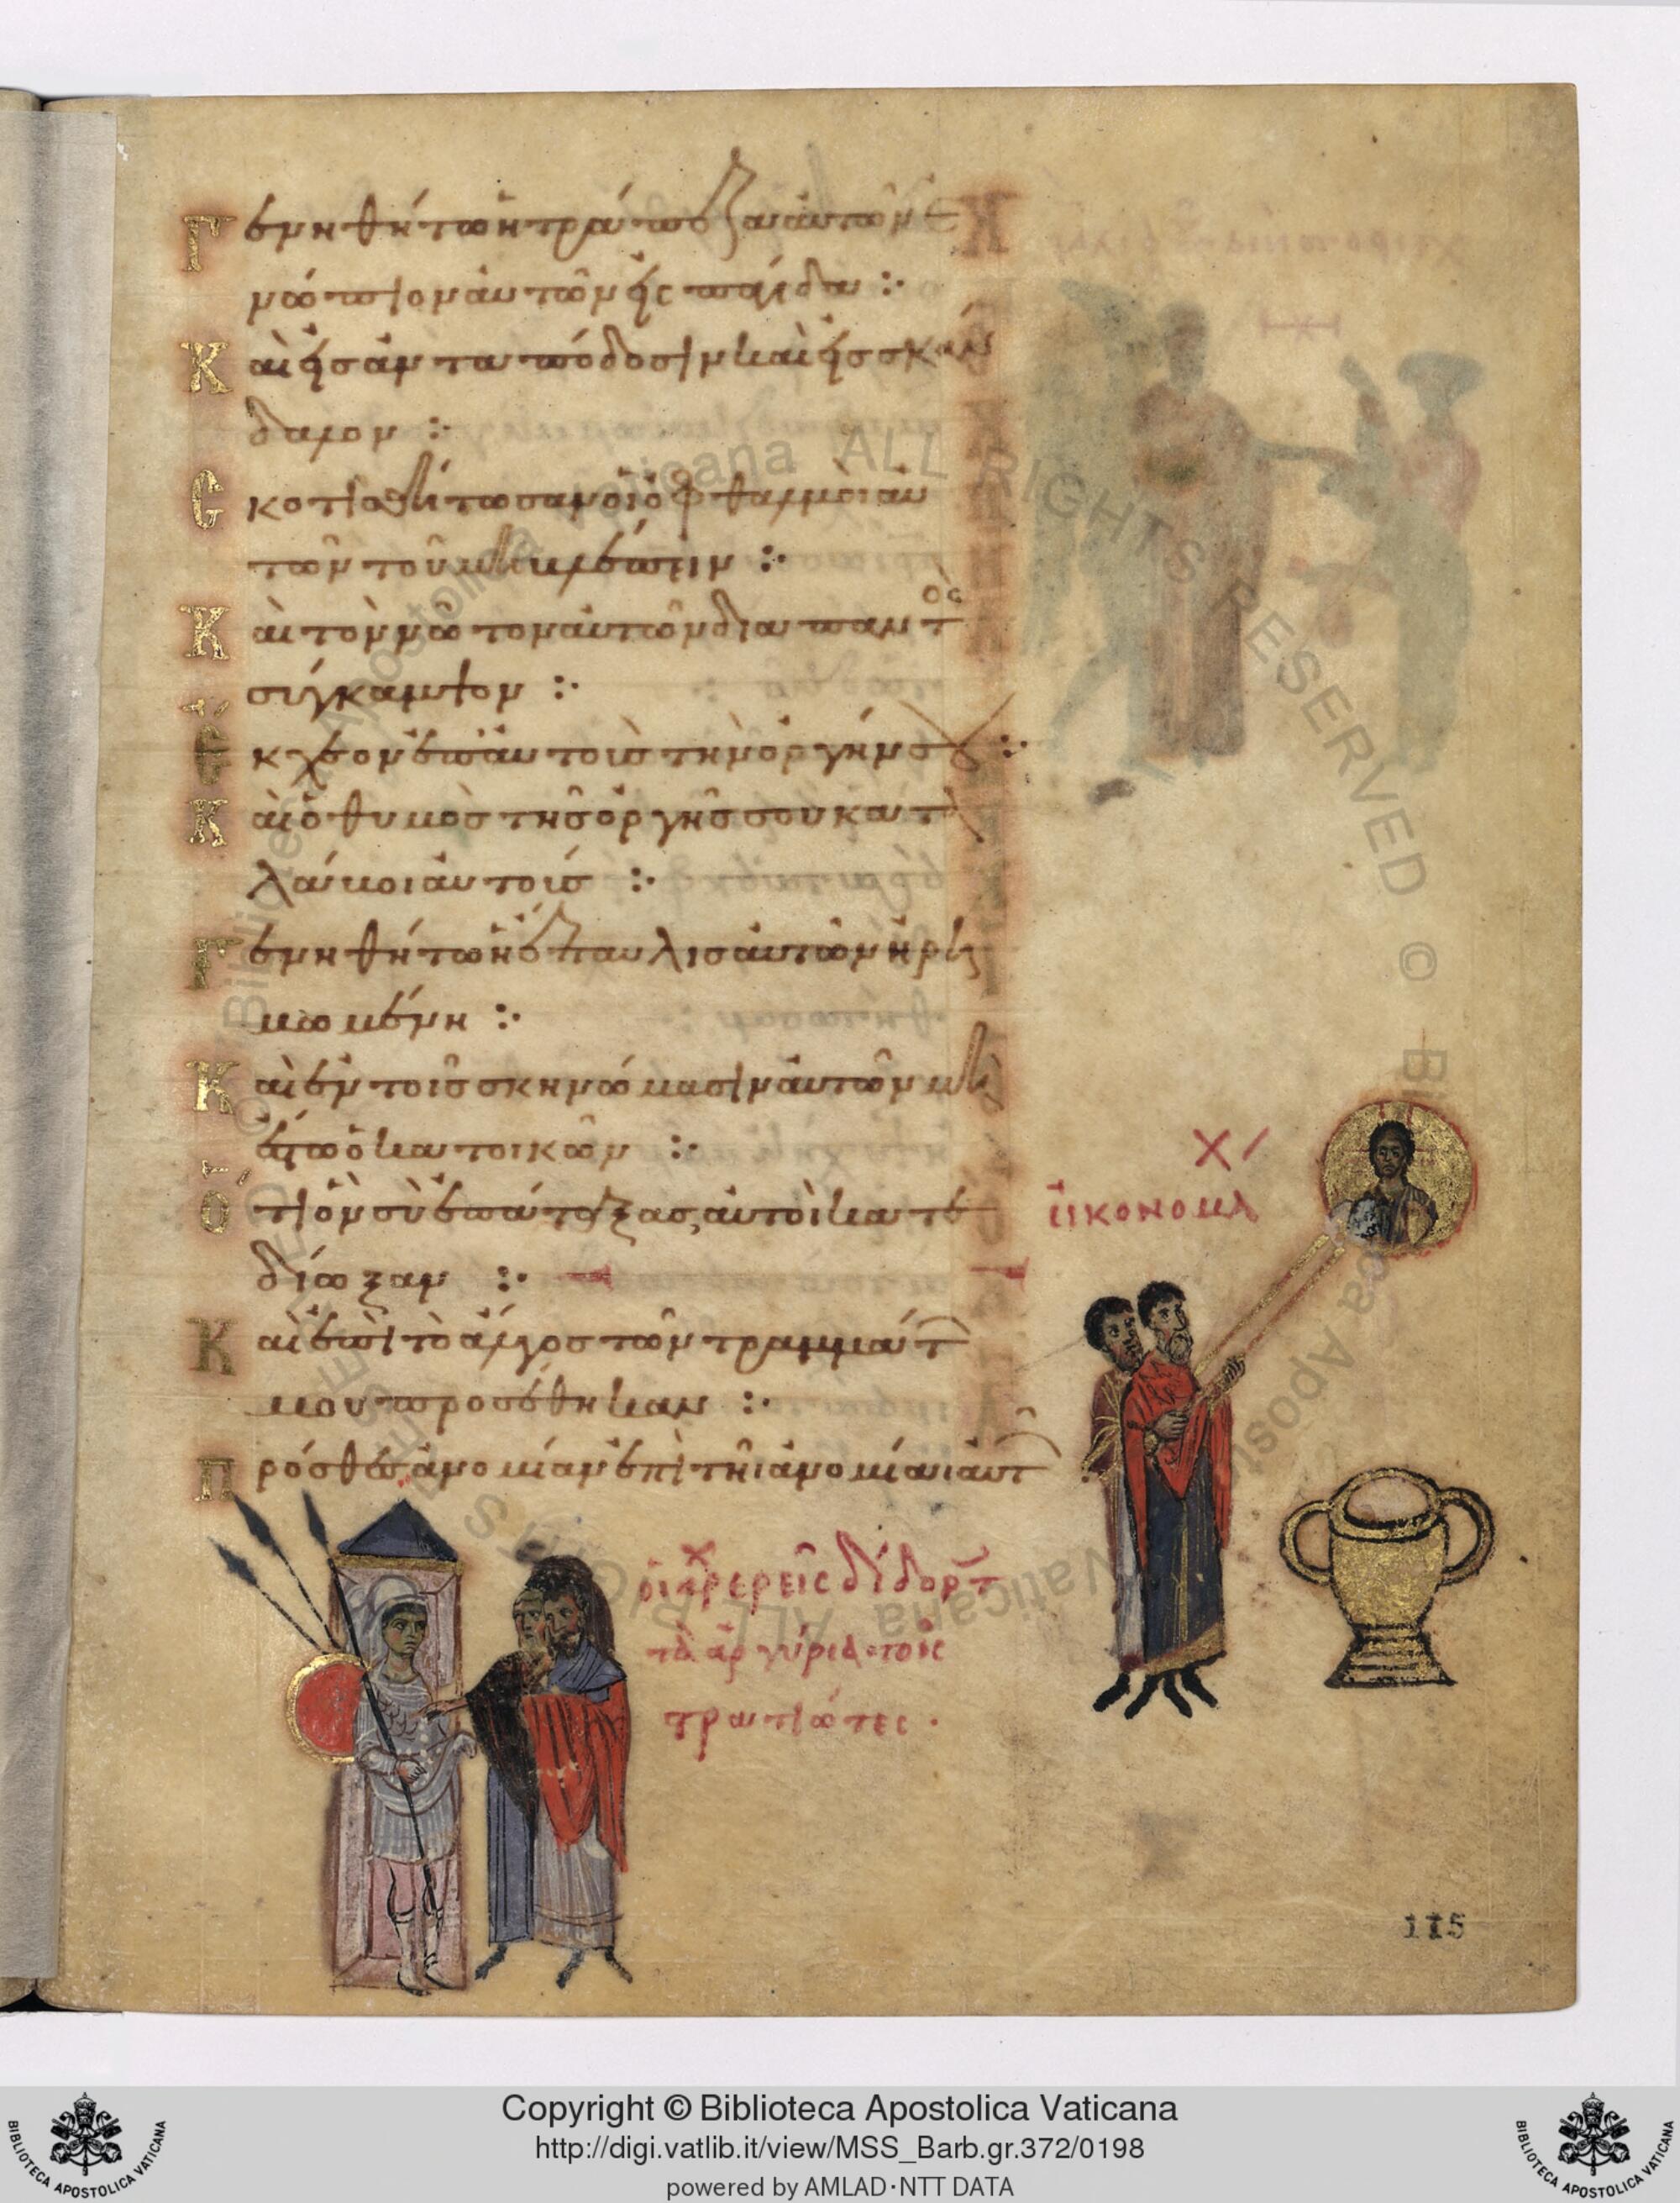 Γενηθήτω ἡ τράπεζα αὐτῶν ἐ
νώπιον αὐτῶν εἰς παγίδα :·
Καὶ εἰς ἀνταπόδοσιν καὶ εἰς σκάν
δαλον :·
Σκοτισθήτωσαν οἱ ὀφθαλμοὶ αὐ
τῶν τοῦ μὴ βλέπειν :·
Καὶ τὸν νῶτον αὐτῶν διαπαντὸς
σύγκαμψον :·
Ἔκχεον ἐπ αὐτοὺς τὴν ὀργήν σου :·
Καὶ ὁ θυμὸς τῆς ὀργῆς σου κατα
λάβοι αὐτούς :·
Γενηθήτω ἡ ἔπαυλις αὐτῶν ἠρη
μωμένη :·
Καὶ ἐν τοῖς σκηνώμασιν αὐτῶν μὴ
ἔστω ὁ κατοικῶν :·
Ὅτι ὃν σὺ ἐπάταξας, αὐτοὶ κατε
δίωξαν :·
Καὶ ἐπὶ τὸ ἄλγος τῶν τραυμάτ
μου προσέθηκαν :·
Πρόσθες ἀνομίαν ἐπὶ τῆι ἀνομίαι αὐτ
εἰκονομα
οἱ ἱερεῖς δίδοντ
τὰ ἀργύρια τοῖς
στρατιώτες ·
115
Copyright © Biblioteca Apostolica Vaticana
http://digi.vatlib.it/view/MSS_Barb.gr.372/0198
powered by AMLAD·NTT DATA
BIBLIOTECA APOSTOLICA VATICANA
BIBLIOTECA APOSTOLICA VATICANA